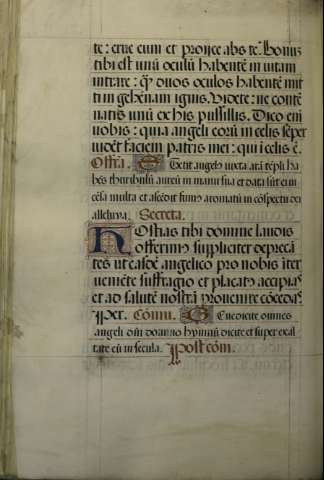 te: erue eum et proiice abs te. Bonuz
tibi est unū oculū habentē in uitam
intrare: q̄ duos oculos habentē mit
ti in gehēnam ignis. Uidete: ne contē
natis unū ex his pusillis. Dico eni
uobis: quia angeli eorū in celis sēper
uidēt faciem patris mei: qui ī celis ē.
Offīta. Stetit angelꝰ iuxta arā tēpli ha
bēs thuribulū aureū in manu sua et data sūt ei in
cēsa multa et ascēdit fumꝰ aromatū in cōspectu dei
alleluya. Secreta.
Hostias tibi domine laudis
offerimꝰ suppliciter deprecā
tes ut easdē angelico pro nobis īter
ueniēte suffragio et placatꝰ accipiaˢ
et ad salutē nostrā prouenire cōcedaˢ
Per. Cōmu. Benedicite omnes
angeli dn̄i domino hymnū dicite et super exal
tate eū in secula. Post cōm.